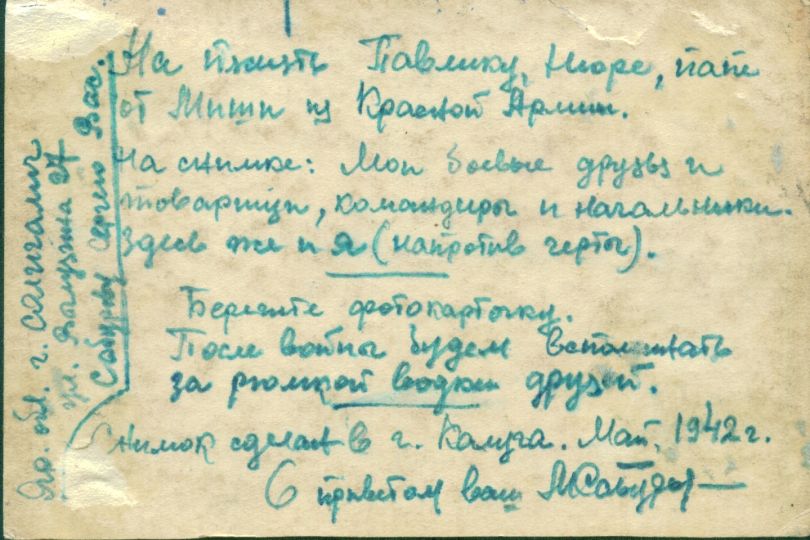 На память Павлику, Нюре, папе
от Миши из Красной Армии.
На снимке: Мои боевые друзья и
товарищи, командиры и начальники.
Здесь же и я (напротив черты).
Берегите фотокарточку.
После войны будем вспоминать
за рюмкой водки друзей.
Снимок сделан в г. Калуга. Май, 1942 г.
С приветом ваш
Яр. обл. г. Солигалич
ул. 27
Сабурову Сергею Вас.